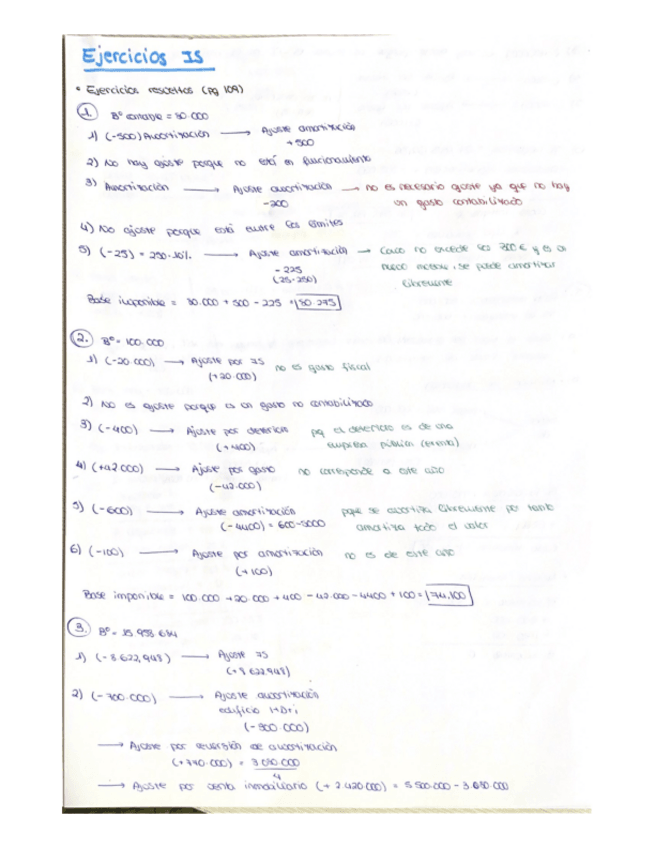 Ejercicios IS
• Ejercicios resueltos (pg 109)
1. Bº contable = 80.000
1) (-500) Amortización → Ajuste amortización
+500
2) No hay ajuste porque no está en funcionamiento
3) Amortización → Ajuste amortización → no es necesario ajuste ya que no hay
-200 un gasto contabilizado
4) No ajuste porque está entre los límites
5) (-25) = 250·10% → Ajuste amortización → Como no excede los 300€ y es un
-225 nuevo, se puede amortizar
(25-250) libremente
Base imponible = 80.000 + 500 - 225 = 80.275
2. Bº = 100.000
1) (-20.000) → Ajuste por IS no es gasto fiscal
(+20.000)
2) No es ajuste porque es un gasto no contabilizado
3) (-400) → Ajuste por deterioro pq el deterioro es de una
(+400) empresa pública (exenta)
4) (+42.000) → Ajuste por gasto no corresponde a este año
(-42.000)
5) (-600) → Ajuste amortización se amortiza libremente por tanto
(-4400) = 600-5000 amortiza todo el valor
6) (-100) → Ajuste por amortización no es de este año
(+100)
Base imponible = 100.000 + 20.000 + 400 - 42.000 - 4400 + 100 = 74.100
3. Bº = 15.958.684
1) (-8.622.948) → Ajuste IS
(+8.622.948)
2) (-700.000) → Ajuste amortización
edificio I+D+i
(-800.000)
→ Ajuste por reversión de amortización
(+770.000) = 3.080.000
4
→ Ajuste por venta inmobiliario (+2.420.000) = 5.500.000 - 3.080.000